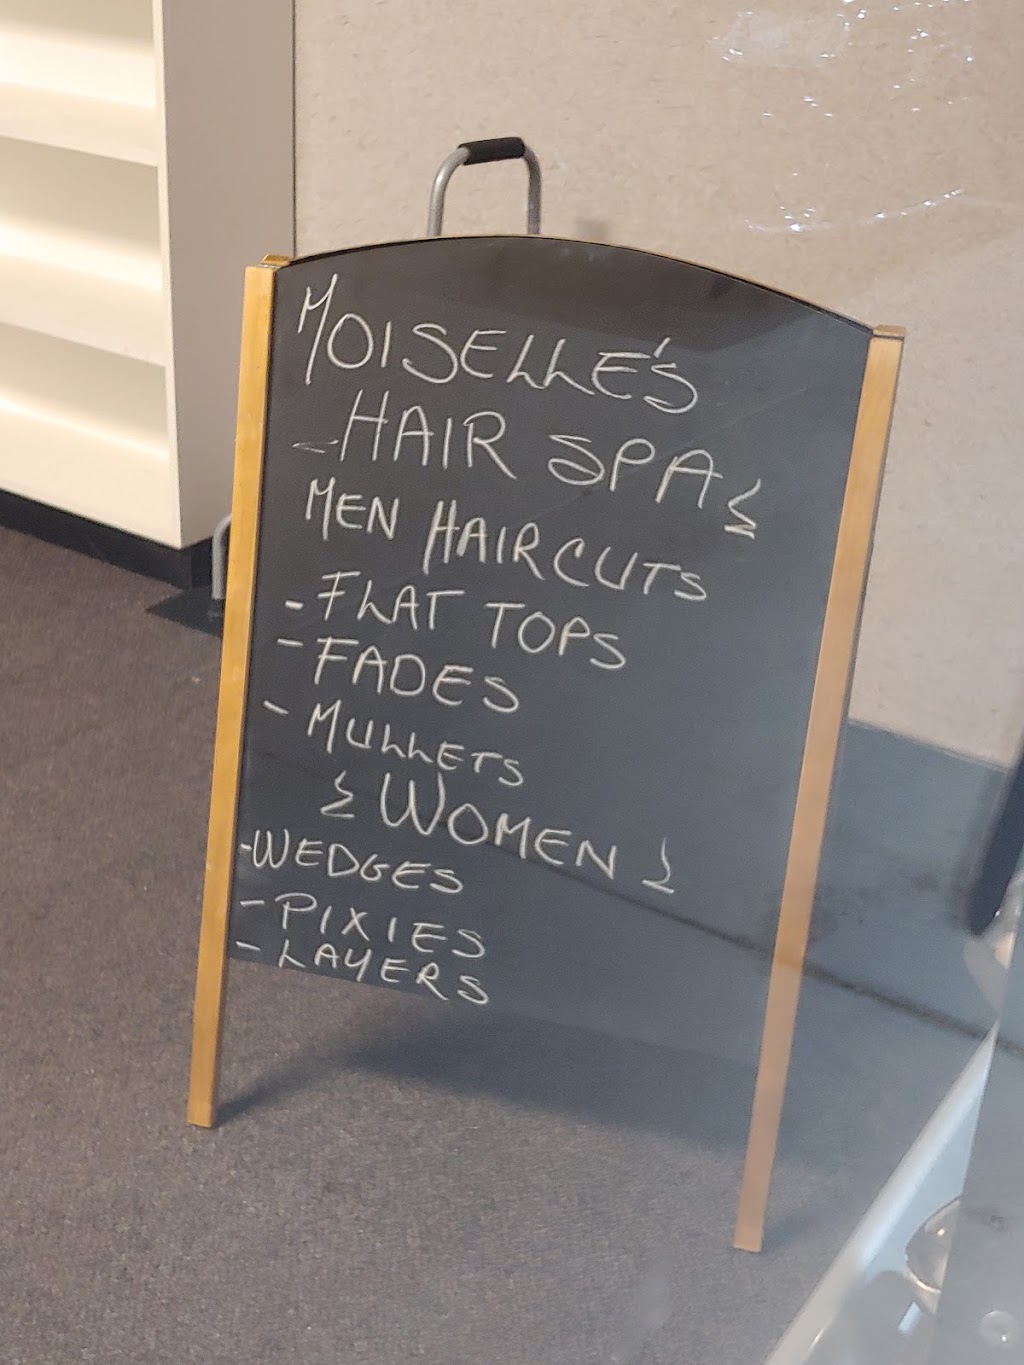 MOISELLE'S
HAIR SPA
MEN HAIRCUTS
- FLAT TOPS
- FADES
- MULLETS
WOMEN
- WEDGES
- PIXIES
- LAYERS